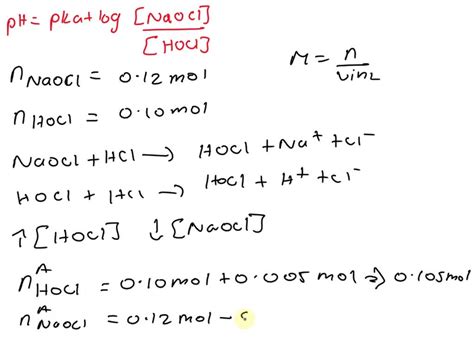 pH = pka + log [NaOCl]
[HOCl]
M = n
V in L
nNaOCl = 0.12 mol
nHOCl = 0.10 mol
NaOCl + HCl → HOCl + Na⁺ + Cl⁻
HOCl + HCl → HOCl + H⁺ + Cl⁻
↑ [HOCl] ↓ [NaOCl]
nᴬHOCl = 0.10 mol + 0.005 mol ⇒ 0.105 mol
nᴬNaOCl = 0.12 mol -